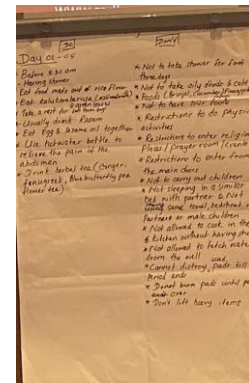 Do
Don't
Day 01 - 03
* Before 5.30 am
- Having shower
Eat food made out of rice flour
Eat
Take a rest for
- Usually drink Rasam
* Eat Egg & sesame oil together
* Use hotwater bottle to
relieve the pain of the
abdomen
* Drink herbal tea (Ginger,
fenugreek, Blue butterfly pea
flower tea)
* Not to take shower for first
three days
* Not to take oily foods & cold
foods (Brinjal, Cucumber, Pineapple
* Not to have sour foods
* Restrictions to do physical
activities
* Restrictions to enter religious
places / prayer room / events
* Restrictions to enter from
the main door
* Not to carry out children
* Not sleeping in a similar
bed with partner & Not
same towel, bedsheet
Partners or male children
* Not allowed to cook in the
kitchen without having
* Not allowed to fetch water
from the well
* Cannot destroy used pads till
period ends
* Donot burn pads until
ends over
* Don't lift heavy items